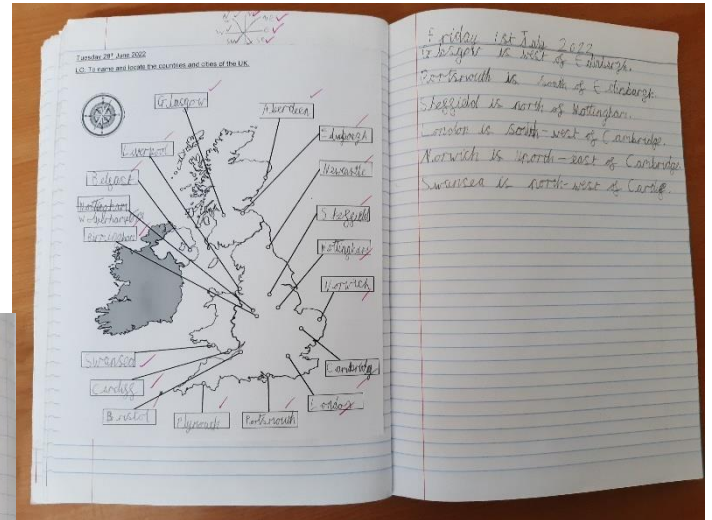 NE
E
SE
S
SW
W
Tuesday 28th June 2022
LO: To name and locate the countries and cities of the UK.
Glasgow
Aberdeen
Liverpool
Edinburgh
Belfast
Newcastle
Wolverhampton
Sheffield
Birmingham
Nottingham
Norwich
Swansea
Cardiff
Cambridge
Bristol
Plymouth
Portsmouth
London
Friday 1st July 2022
Glasgow is west of Edinburgh.
Portsmouth is south of Edinburgh.
Sheffield is north of Nottingham.
London is south-west of Cambridge.
Norwich is north-east of Cambridge.
Swansea is north-west of Cardiff.